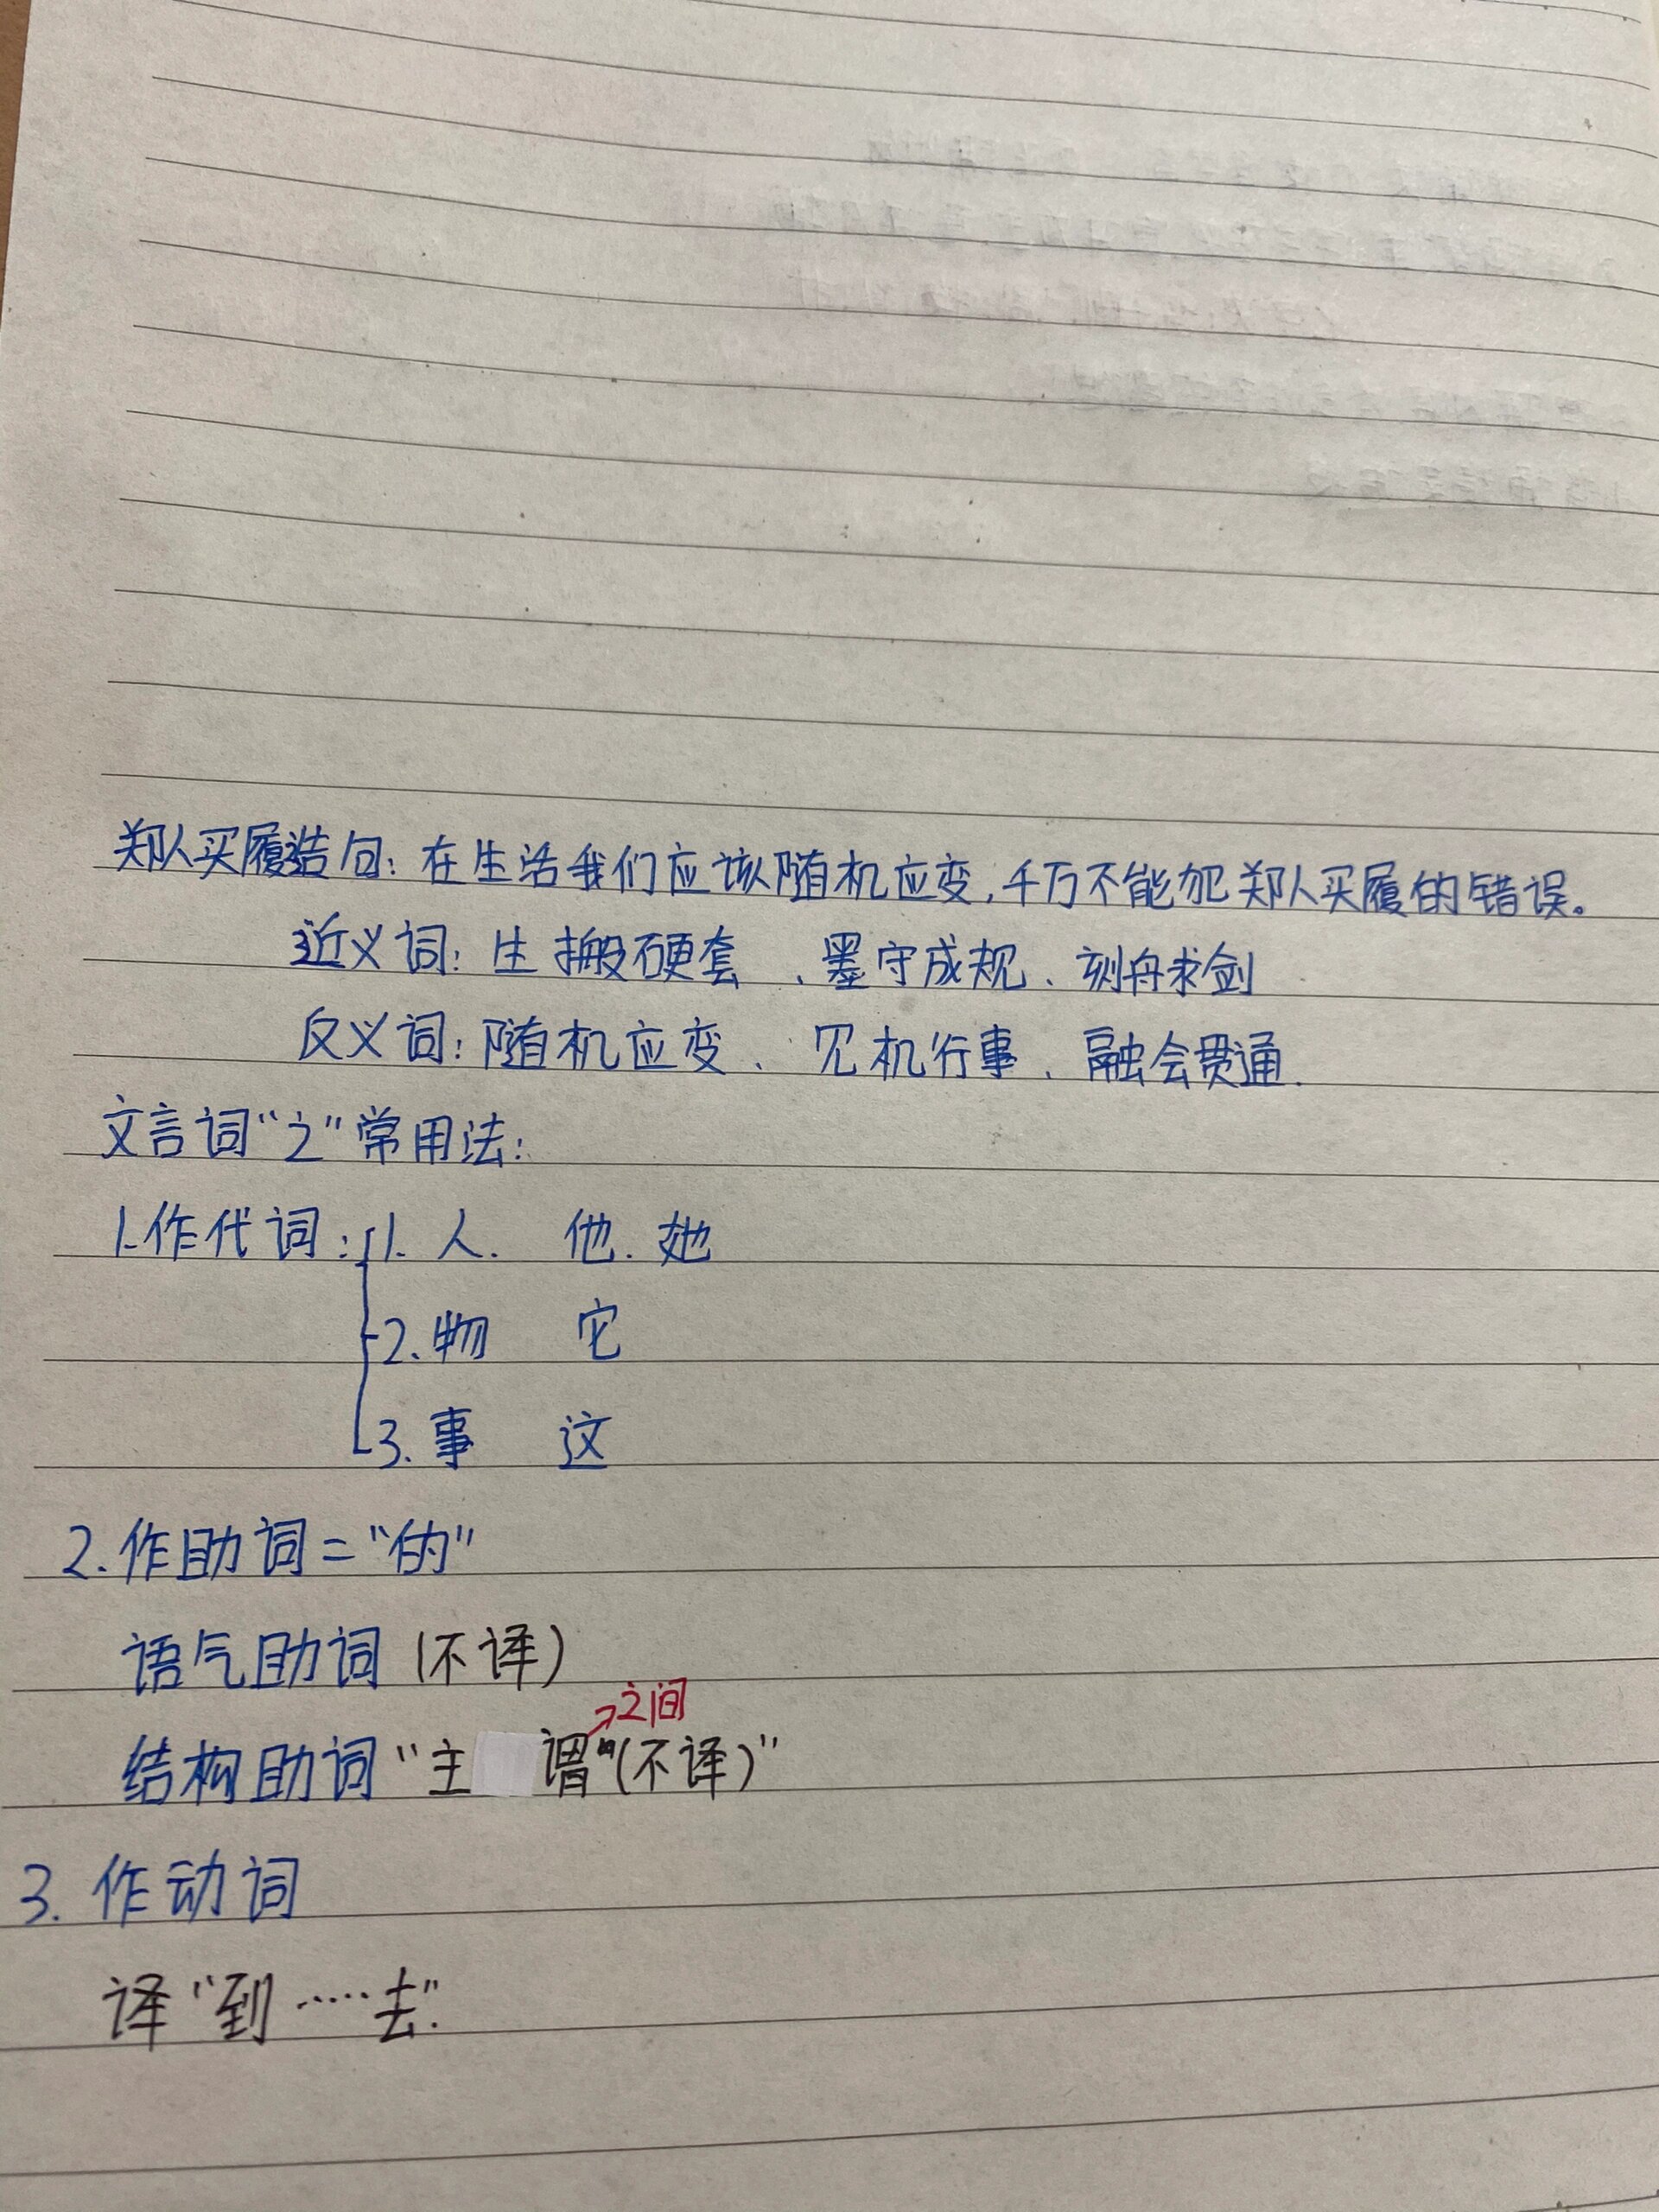 郑人买履造句：在生活我们应该随机应变，千万不能犯郑人买履的错误。
近义词：生搬硬套、墨守成规、刻舟求剑
反义词：随机应变、见机行事、融会贯通.
文言词“之”常用法：
1.作代词：1.人. 他.她
2.物 它
3.事 这
2.作助词=“的”
语气助词(不译)
之间
结构助词“主 谓”(不译)”
3.作动词
译“到……去”.